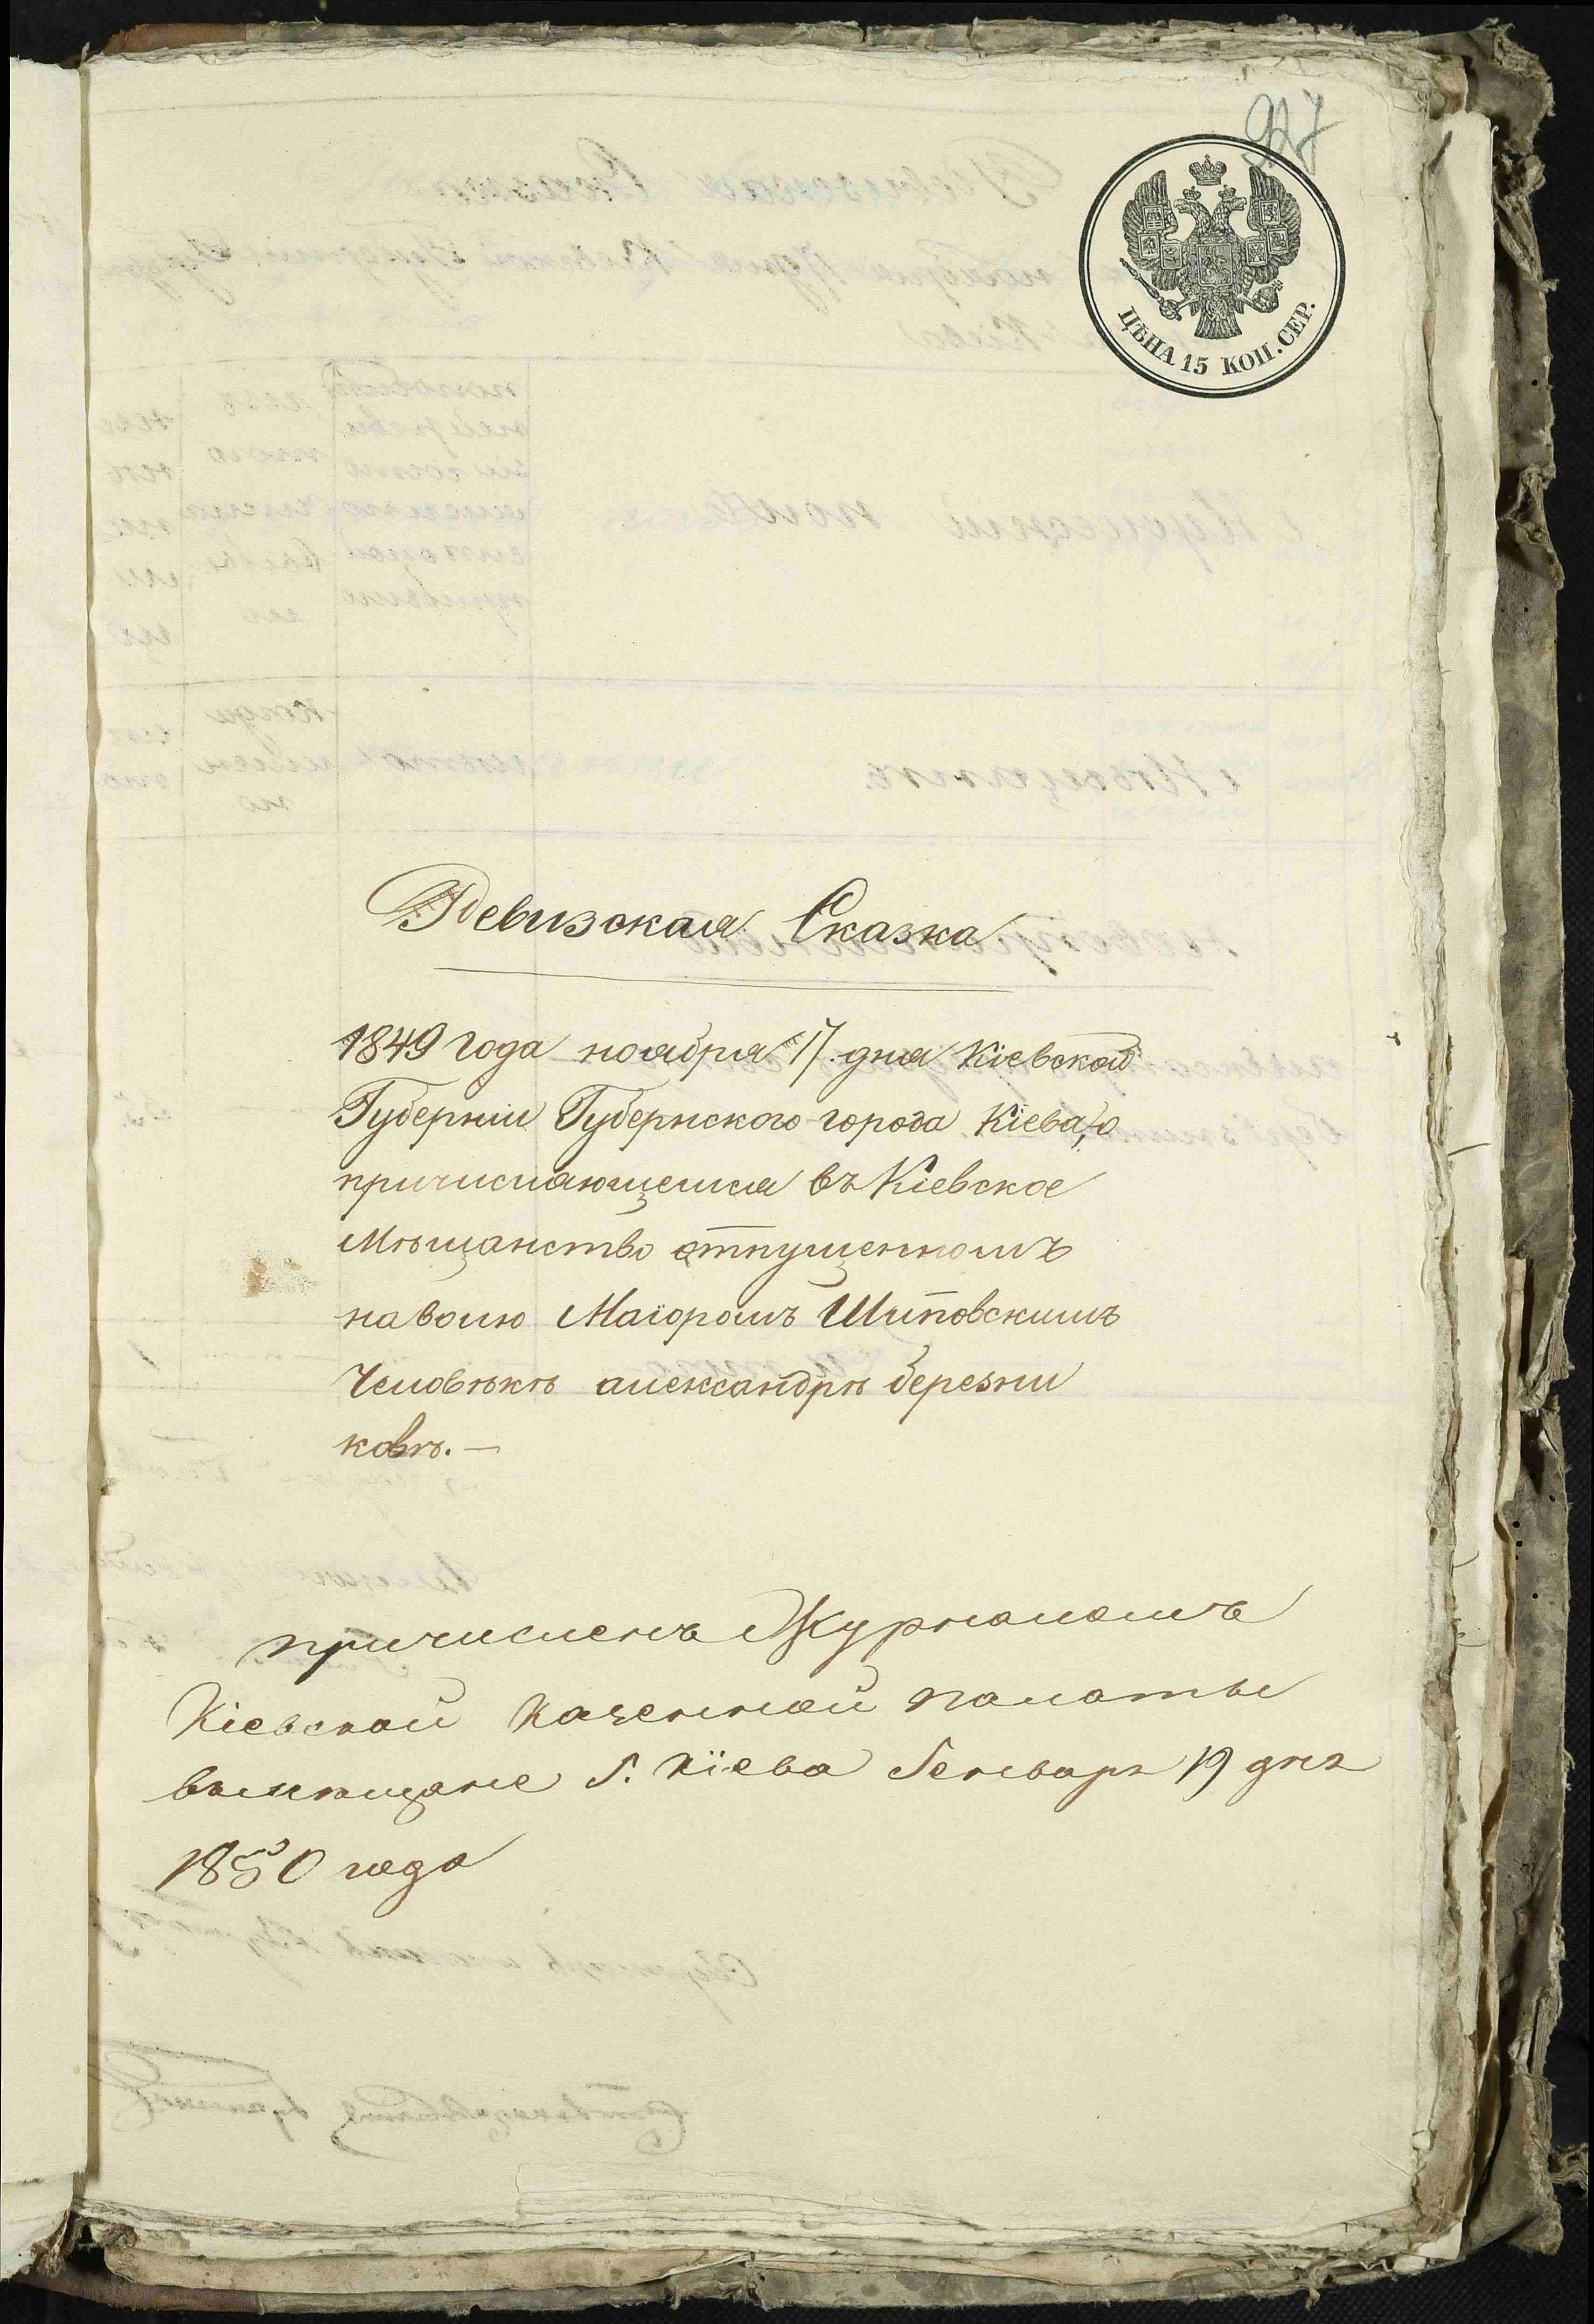 927
ЦѢНА 15 КОП. СЕР.
Ревизская Сказка
1849 года ноября 17 дня Кіевской
Губерніи Губернского города Кіева, о
причисляющемся въ Кіевское
Мѣщанство отпущенномъ
наволю Маіоромъ Шиповскимъ
Человѣкѣ александрѣ березни
ковѣ.—
причисленъ Журналомъ
Кіевской Казенной палаты
вмѣщане Г. Кіева Генваря 19 дня
1850 года